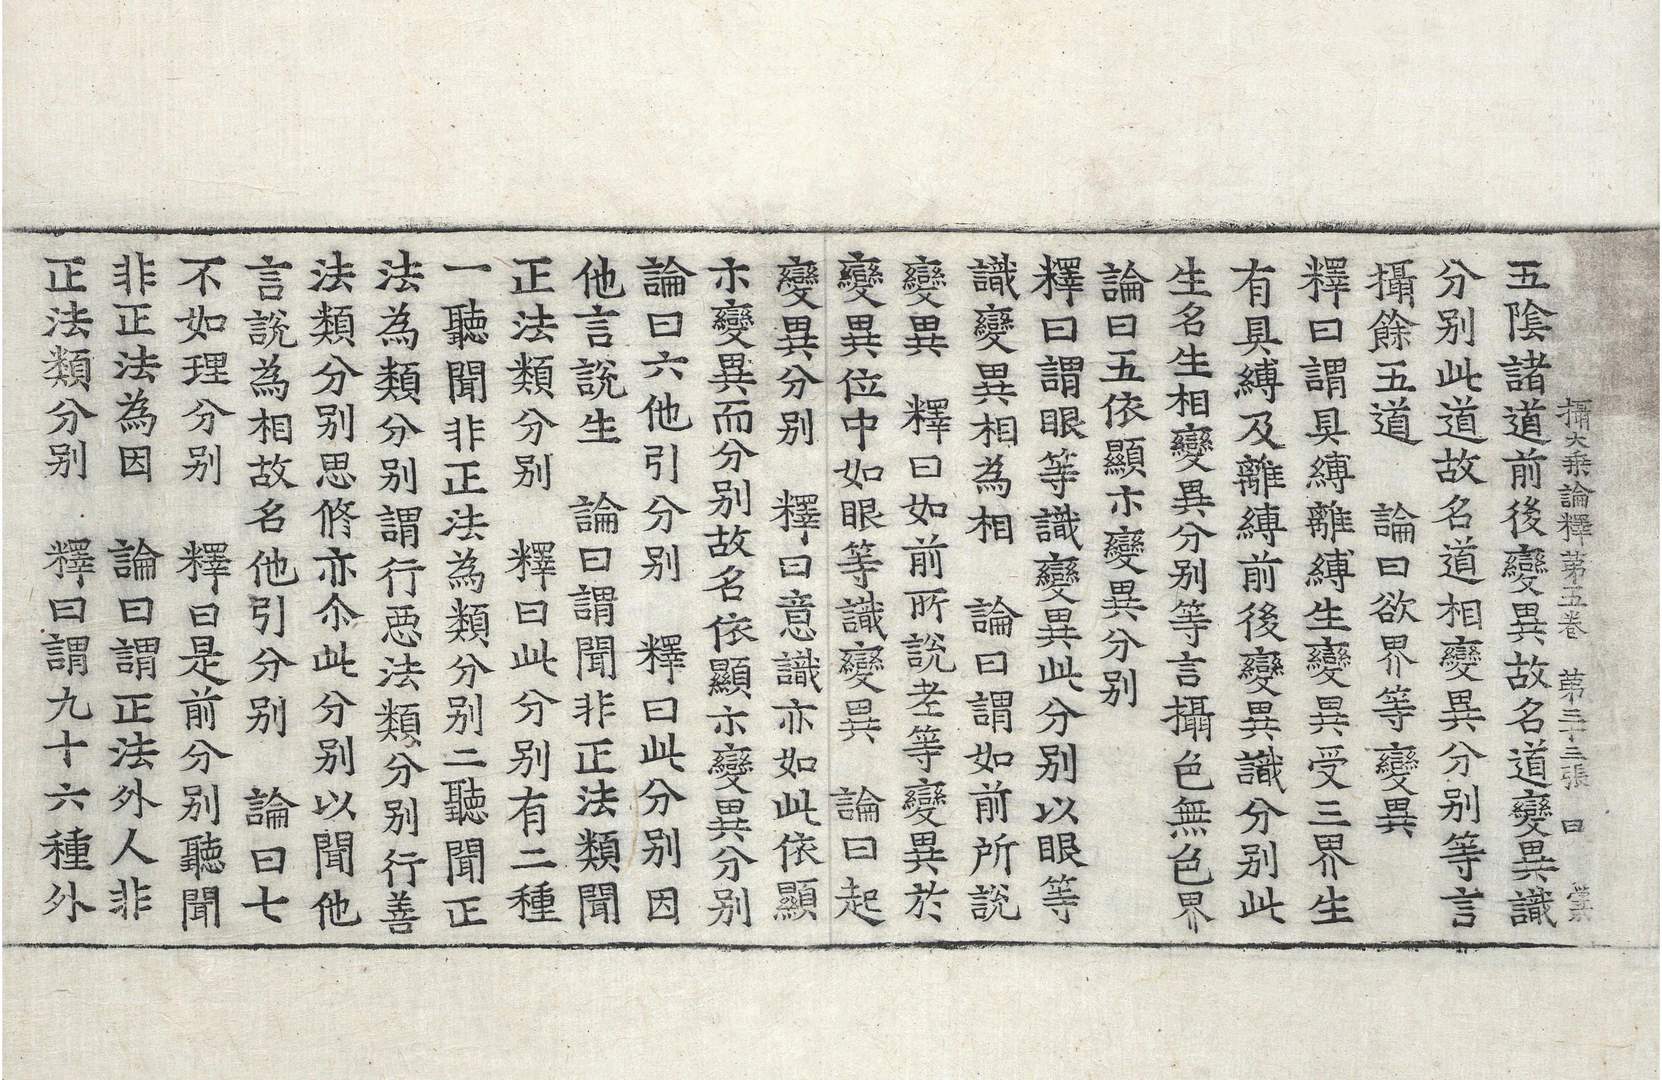 攝大乘論釋第五卷　第三十三張　曰　棠
五陰諸道前後變異故名道變異識
分別此道故名道相變異分別等言
攝餘五道　論曰欲界等變異
釋曰謂具縛離縛生變異受三界生
有具縛及離縛前後變異識分別此
生名生相變異分別等言攝色無色界
論曰五依顯示變異分別
釋曰謂眼等識變異此分別以眼等
識變異相為相　論曰謂如前所說
變異　釋曰如前所說老等變異於
變異位中如眼等識變異　論曰起
變異分別　釋曰意識亦如此依顯
示變異而分別故名依顯示變異分別
論曰六他引分別　釋曰此分別因
他言說生　論曰謂聞非正法類聞
正法類分別　釋曰此分別有二種
一聽聞非正法為類分別二聽聞正
法為類分別謂行惡法類分別行善
法類分別思脩亦尒此分別以聞他
言說為相故名他引分別　論曰七
不如理分別　釋曰是前分別聽聞
非正法為因　論曰謂正法外人非
正法類分別　釋曰謂九十六種外